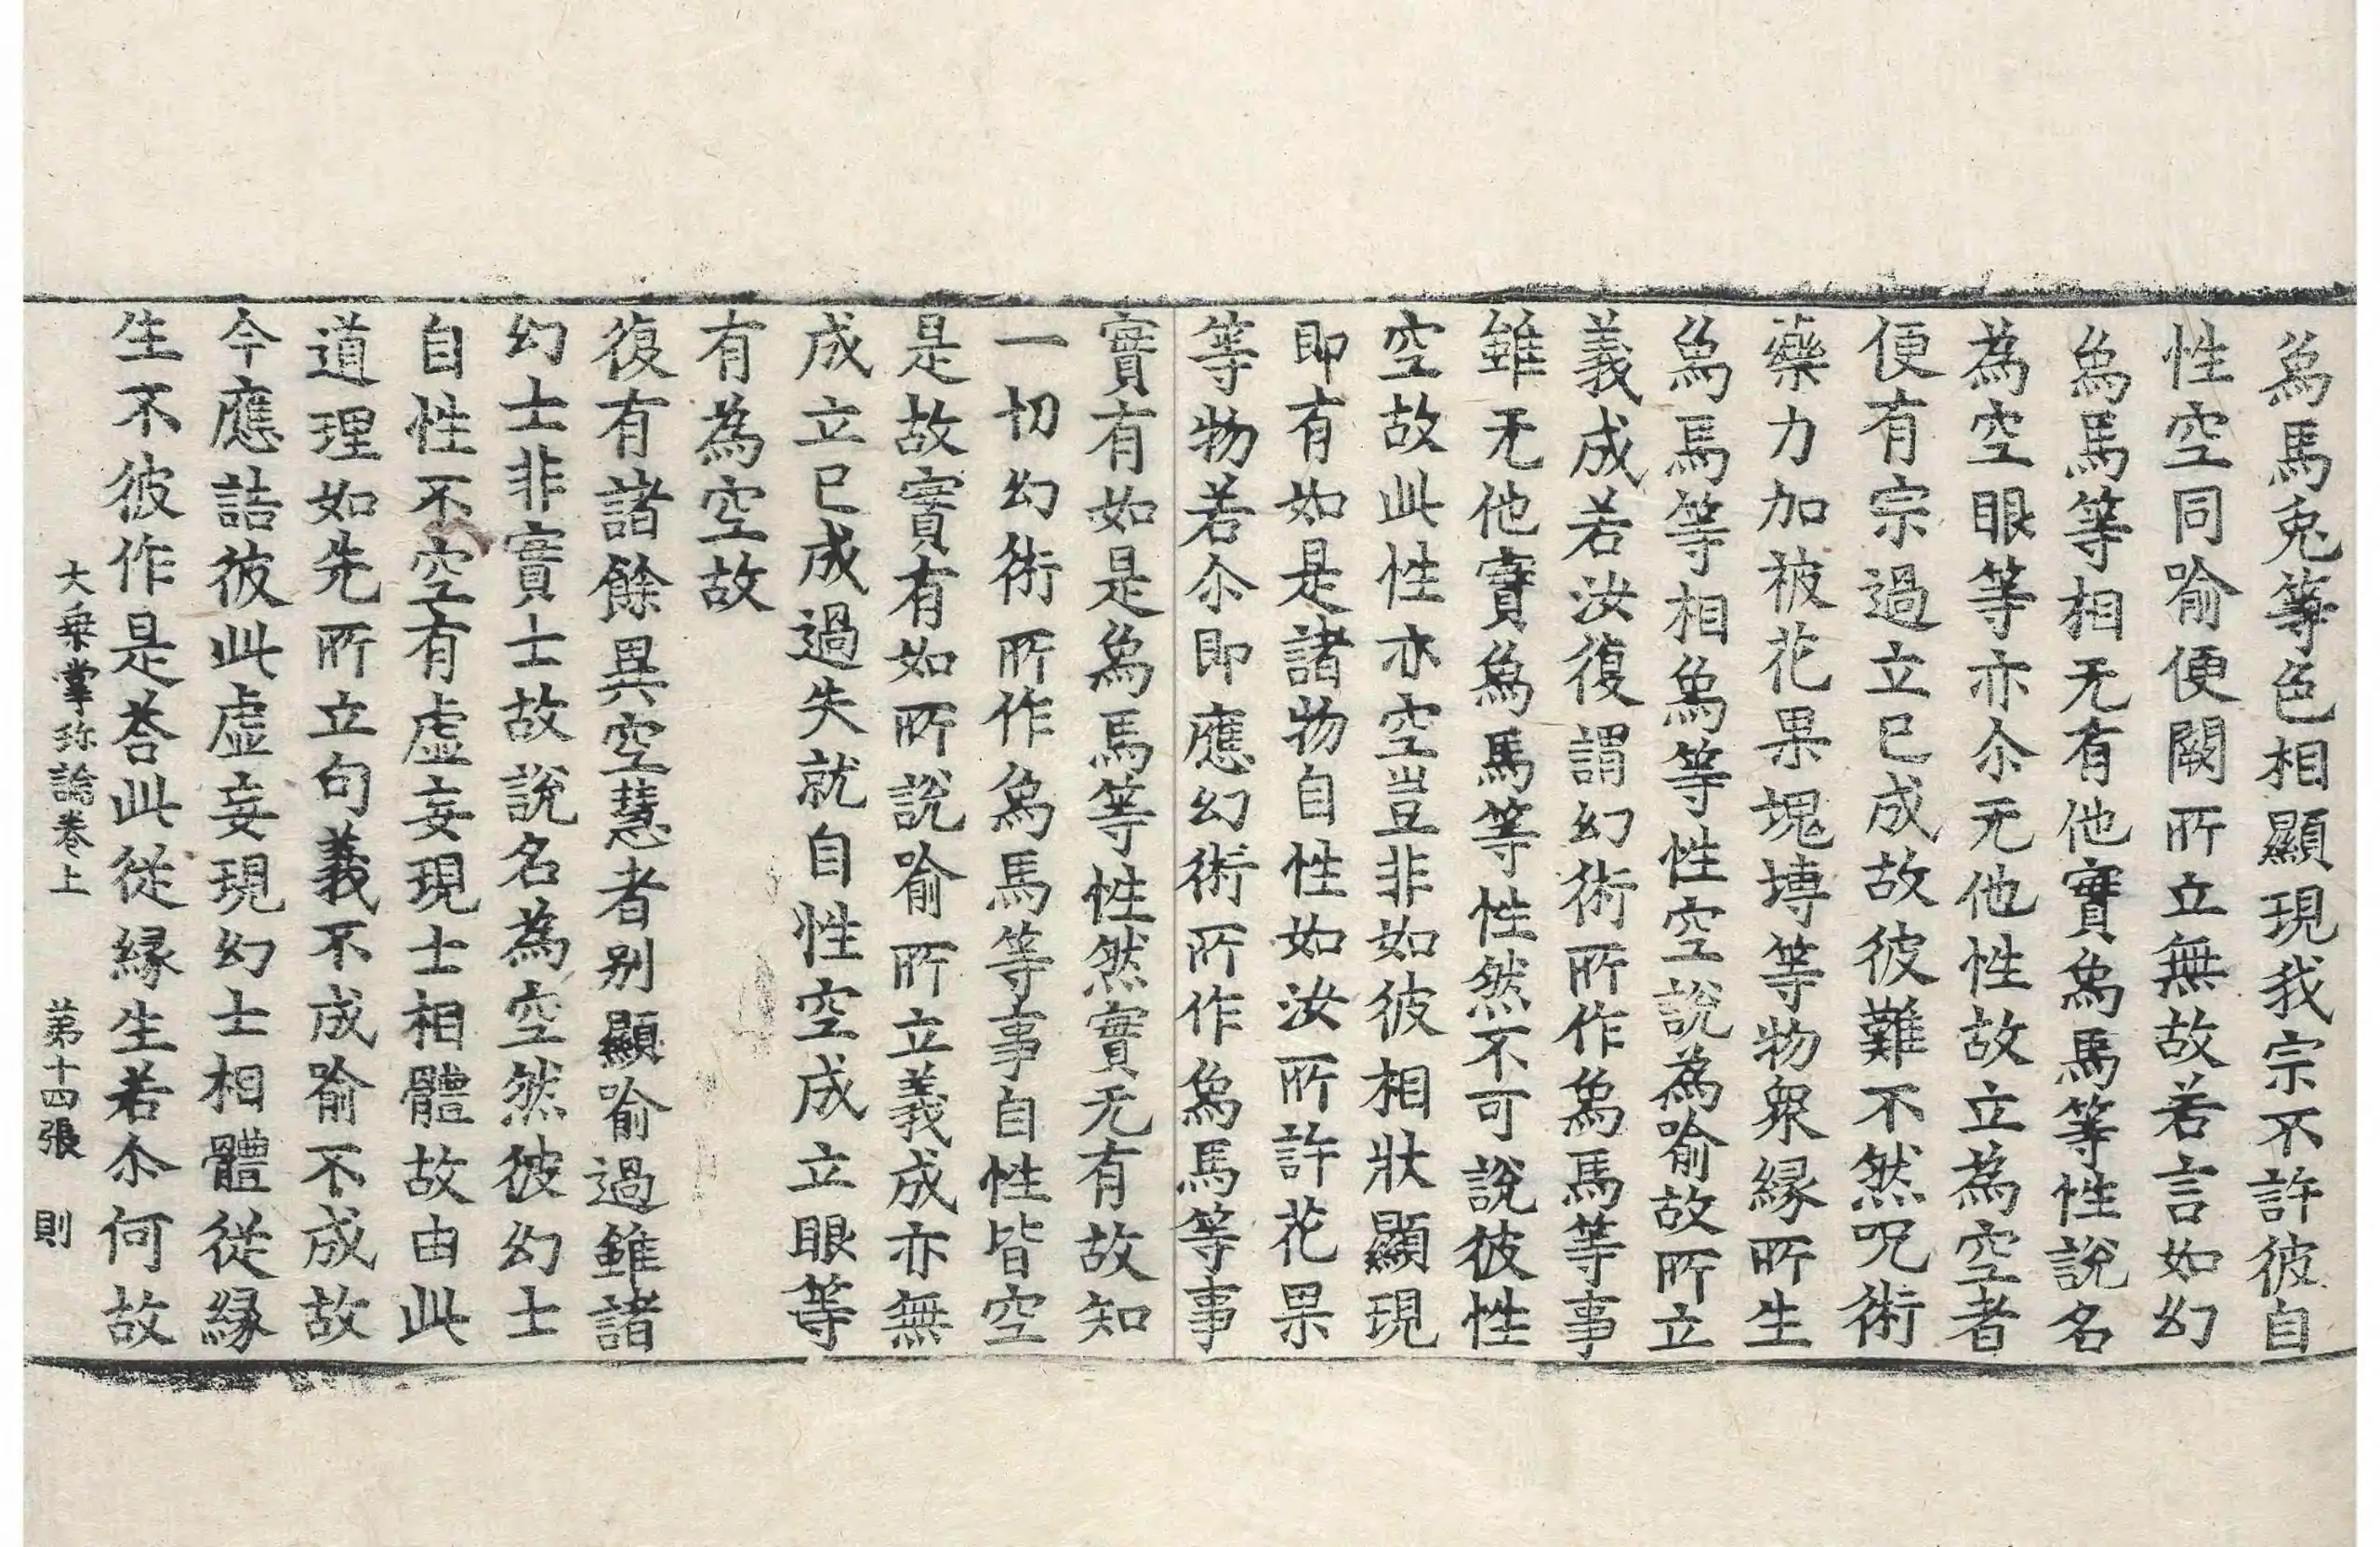 為馬兎等色相顯現我宗不許彼自
性空同喻便闕所立無故若言如幻
為馬等相无有他實為馬等性說名
為空眼等亦尒无他性故立為空者
便有宗過立已成故彼難不然呪術
藥力加被花果塊塼等物衆縁所生
為馬等相為等性空說為喻故所立
義成若汝復謂幻術所作為馬等事
雖无他實為馬等性然不可說彼性
空故此性亦空豈非如彼相狀顯現
即有如是諸物自性如汝所許花果
等物若尒即應幻術所作為馬等事
實有如是為馬等性然實无有故知
一切幻術所作為馬等事自性皆空
是故實有如所說喻所立義成亦無
成立已成過失就自性空成立眼等
有為空故
復有諸餘異空慧者别顯喻過雖諸
幻士非實士故說名為空然彼幻士
自性不空有虛妄現士相體故由此
道理如先所立句義不成喻不成故
今應詰彼此虛妄現幻士相體從縁
生不彼作是荅此從縁生若尒何故
大乗掌珎論卷上 苐十四張 則